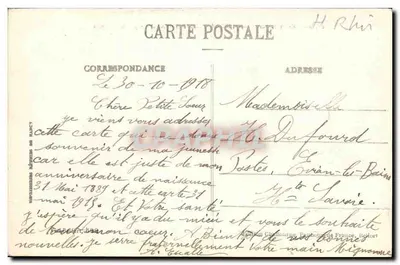 H Rhin
CARTE POSTALE
CORRESPONDANCE
ADRESSE
Le 30-10-1918
Chère Petite Soeur
je viens vous adresser
cette carte qui
souvenir de ma jeunesse
car elle est juste de mon
anniversaire de naissance
31 Mai 1895 et cette carte 31
mai 1915. Et votre santé
j'espère qu'il y a du mieux et vous le souhaite
de tout mon coeur. A Bientôt de vos bonnes
nouvelles. je serre fraternellement votre main Mignonne
Mademoiselle
H. Dufourd
Postes, Evian-les-Bains
Hte Savoie